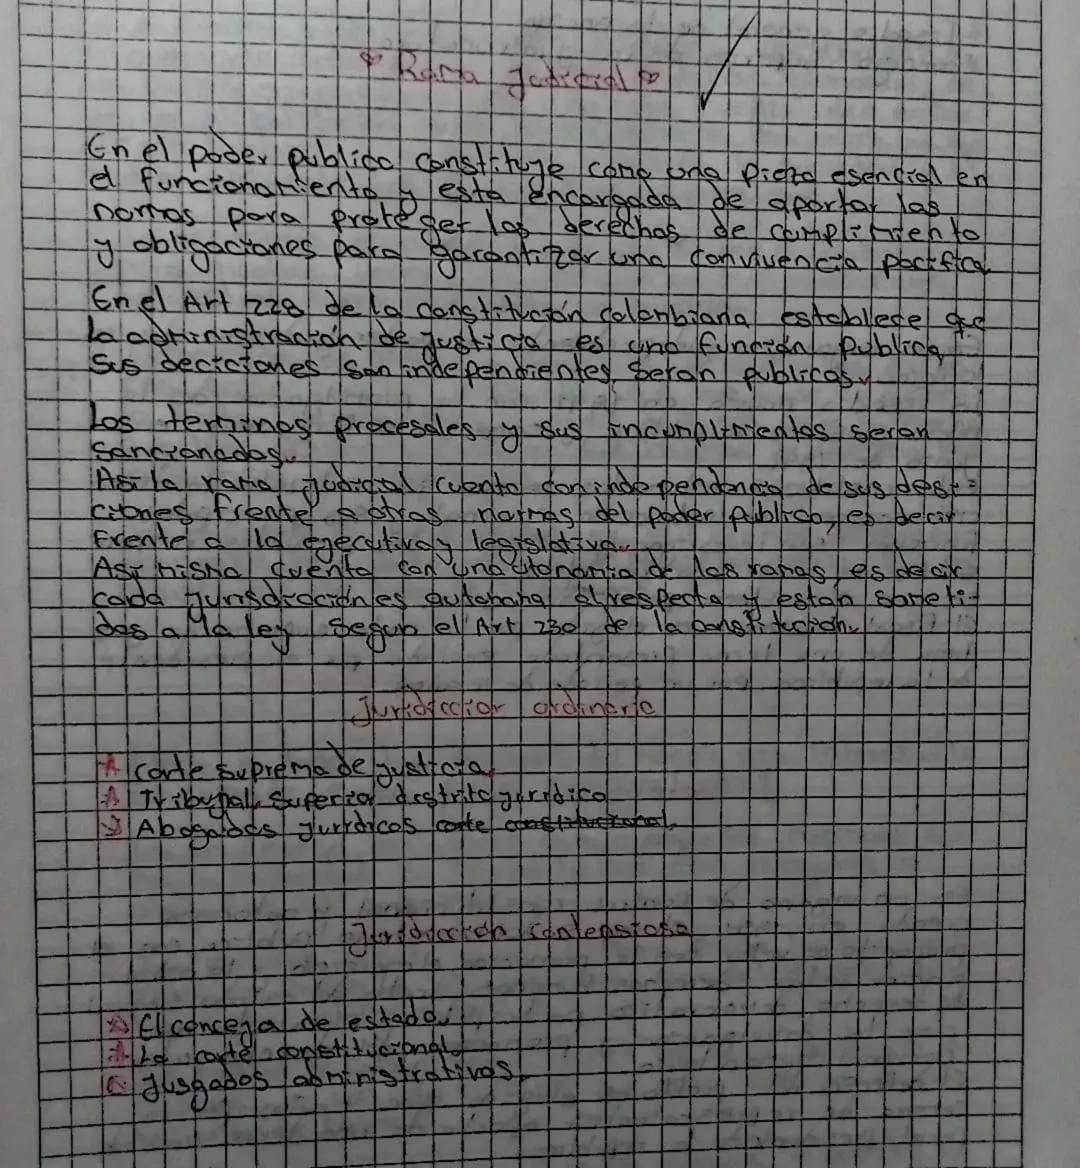 Rama judicial
En el poder publico constituye como una pieza esencial en
el funcionamiento y esta encargada de aportar las
normas para proteger los derechos de cumplimiento
y obligaciones para garantizar una convivencia pacifica
En el Art 228 de la constitución colombiana establece que
la administración de justicia es una función publica,
sus deciciones son independientes, seran publicas.
Los terminos procesales y sus incumplimientos seran
sancionados.
Asi la rama judicial cuenta con independencia de sus desi-
ciones frente a otras normas del poder publico, es decir
Frente a la ejecutiva y legislativa.
Asi misma cuenta con una autonomia de las ramas, es decir
cada jurisdicciones autonoma al respecto y estan someti-
das a la ley segun el Art 230 de la constitución.
Juridiccion ordinaria
Corte suprema de justicia
Tribunal superior distrito juridico
Abogados juridicos corte constitucional
Juridiccion contensiosa
El conceja de estado.
La corte constitucional.
Jusgados administrativos